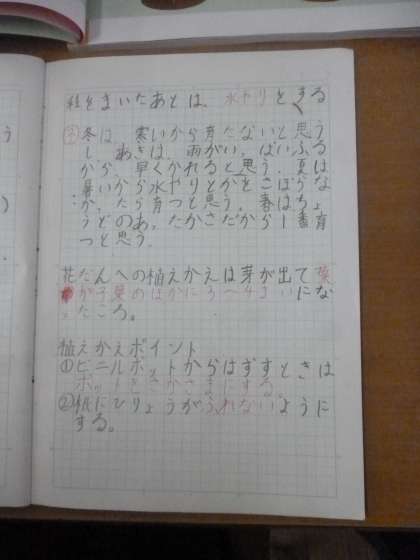 種をまいたあとは、水やりをする
冬は、寒いから育たないと思う
し、あきは、雨がいっぱいふる
から、早くかれると思う。夏は
暑いから水やりとかをこぼらな
かったら育つと思う。春はちょ
うどのあったかさだから1番育
つと思う。
花だんへの植えかえは芽が出て葉
が子葉のほかに3〜4まいにな
たころ。
植えかえポイント
①ビニルポットからはずすときは
ポットをさかさまにする。
②根にひりょうがふれないように
する。